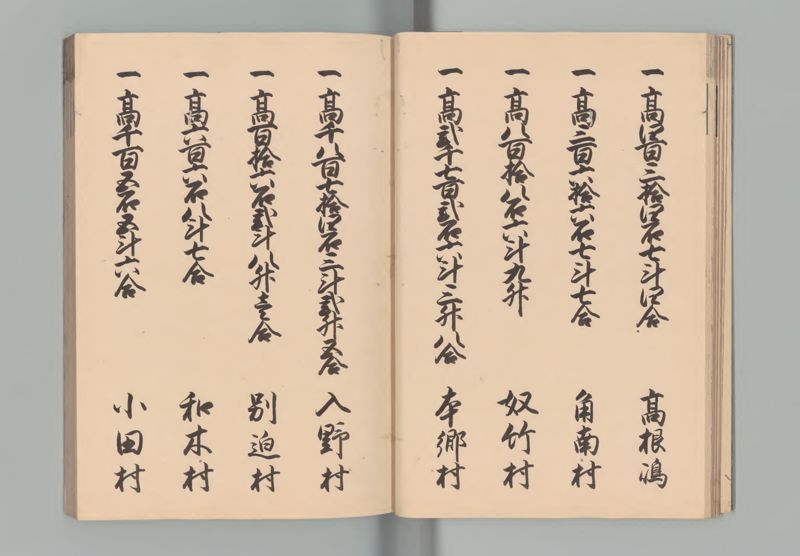 一高四百三拾四石七斗四合 高根嶋
一高三百六拾六石七斗七合 角南村
一高八百拾八石六斗九升 奴竹村
一高弐千七百弐石六斗三升八合 本郷村
一高千八百七拾四石三斗弐升五合 入野村
一高百拾六石弐斗八升壱合 別迫村
一高六百六石八斗七合 和木村
一高千百五石五斗六合 小田村